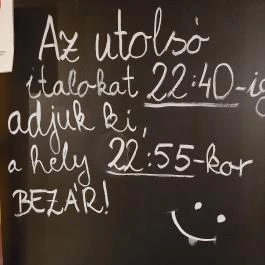 Az utolsó
italokat 22:40-ig
adjuk ki,
a hely 22:55-kor
BEZÁR!